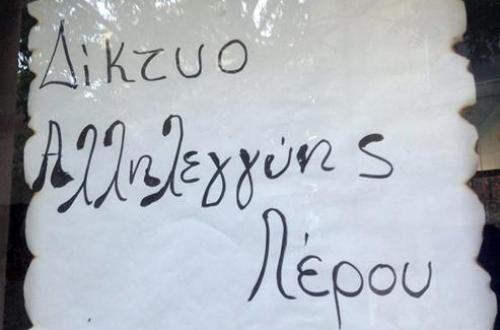 Δίκτυο
Αλληλεγγύης
Λέρου